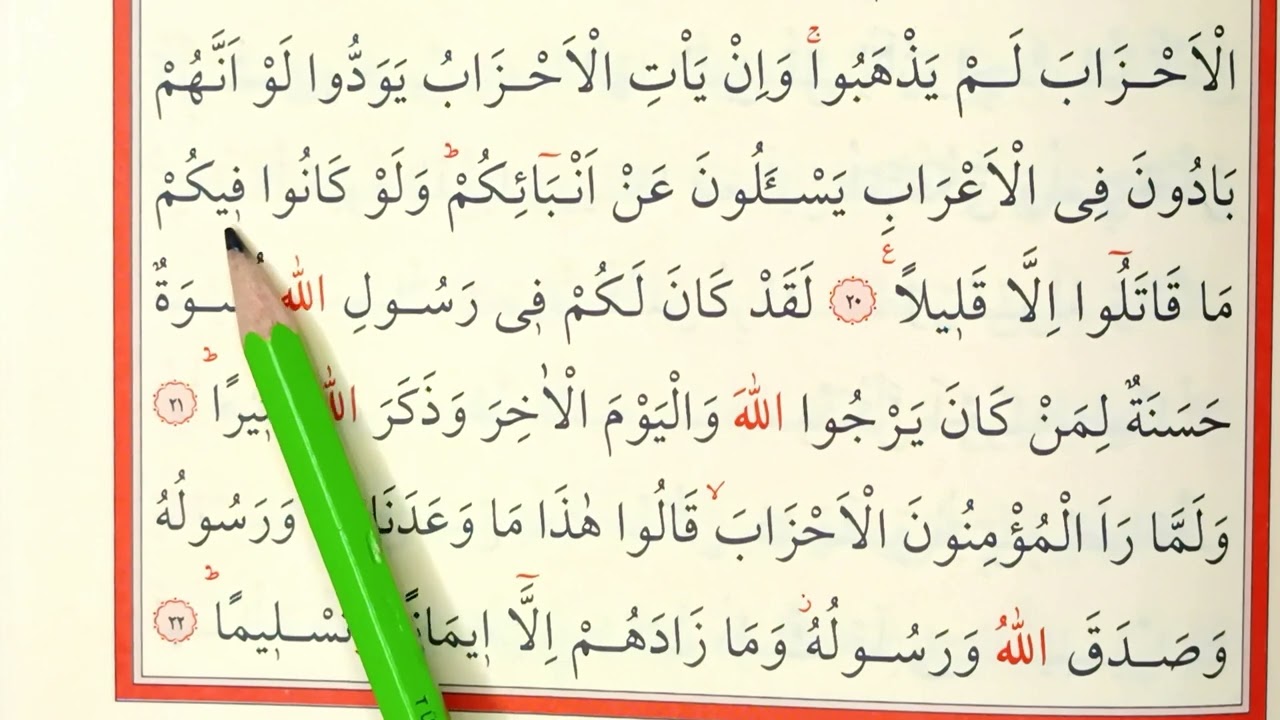 الْاَحْزَابَ لَمْ يَذْهَبُواۚ وَاِنْ يَاْتِ الْاَحْزَابُ يَوَدُّوا لَوْ اَنَّهُمْ
بَادُونَ فِى الْاَعْرَابِ يَسْـَٔلُونَ عَنْ اَنْبَٓائِكُمْۜ وَلَوْ كَانُوا ف۪يكُمْ
مَا قَاتَلُٓوا اِلَّا قَل۪يلاًۚ ع ٢٠ لَقَدْ كَانَ لَكُمْ ف۪ى رَسُولِ اللّٰهِ
حَسَنَةٌ لِمَنْ كَانَ يَرْجُوا اللّٰهَ وَالْيَوْمَ الْاٰخِرَ وَذَكَرَ ط ٢١
وَلَمَّا رَاَ الْمُؤْمِنُونَ الْاَحْزَابَۙ قَالُوا هٰذَا مَا وَعَدَنَا وَرَسُولُهُ
وَصَدَقَ اللّٰهُ وَرَسُولُهُۘ وَمَا زَادَهُمْ اِلَّٓا ا۪يمَانًا ط ٢٢
TÜ